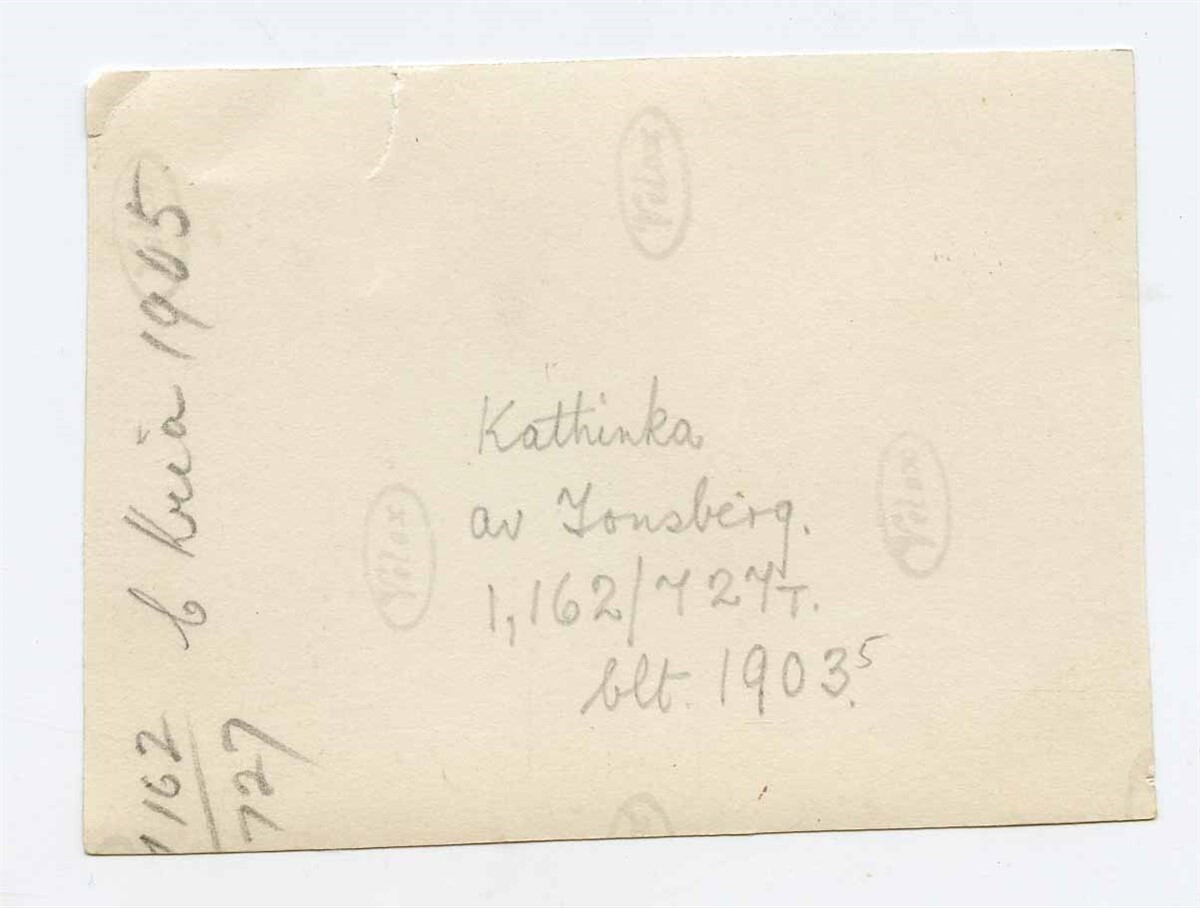 Kathinka
av Tonsberg.
1,162/727T.
blt. 1903.5
b Kria 1905
1162
727
Velox
Velox
Velox